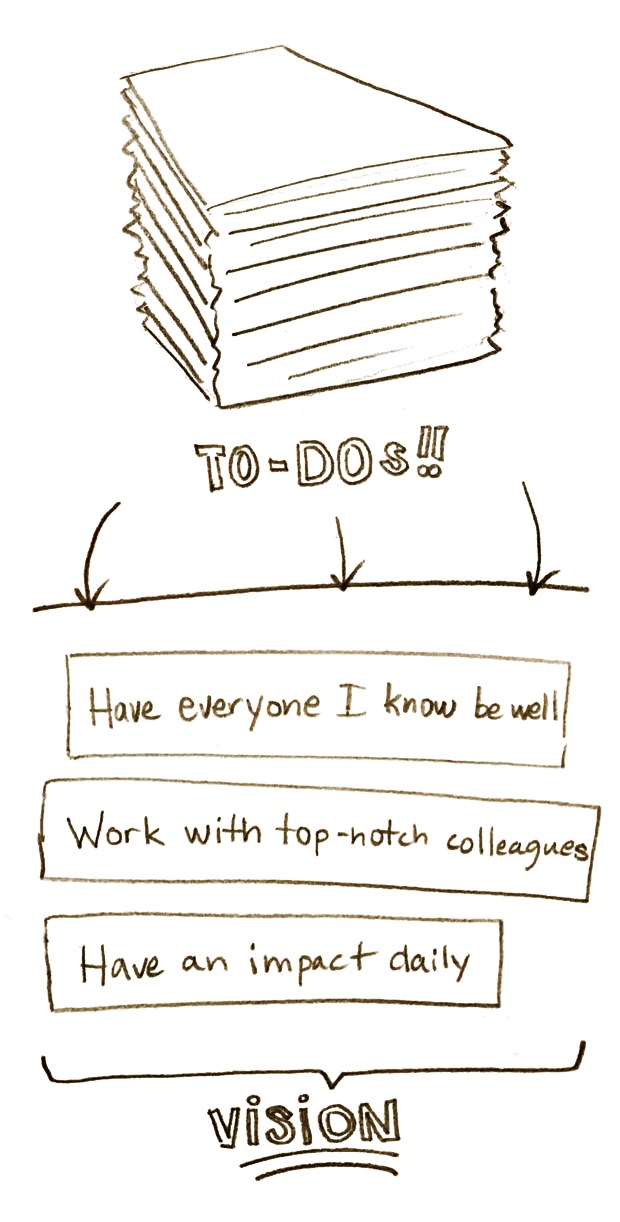 TO-DOs!!
Have everyone I know be well
Work with top-notch colleagues
Have an impact daily
ViSiON